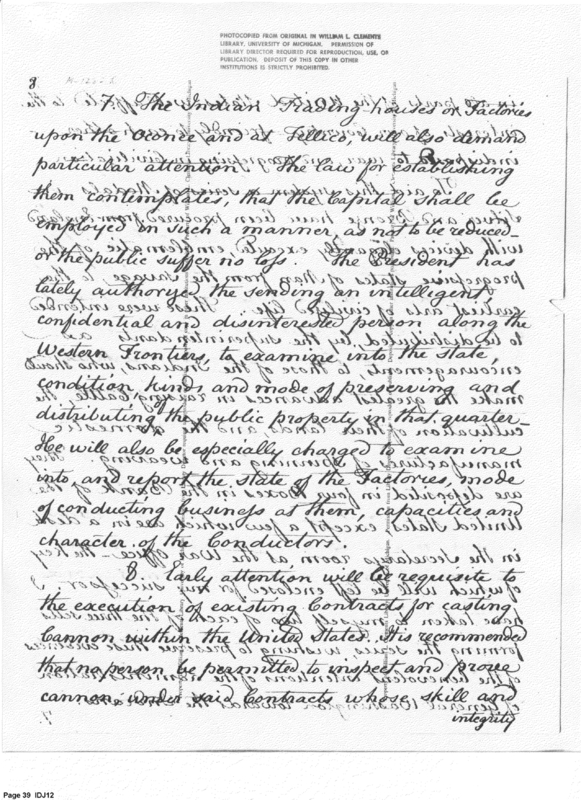 PHOTOCOPIED FROM ORIGINAL IN WILLIAM L. CLEMENTS
LIBRARY, UNIVERSITY OF MICHIGAN. PERMISSION OF
LIBRARY DIRECTOR REQUIRED FOR REPRODUCTION, USE, OR
PUBLICATION. DEPOSIT OF THIS COPY IN OTHER
INSTITUTIONS IS STRICTLY PROHIBITED.
8
7. The Indian Trading houses or Factories
upon the Oconee and at Tellico, will also demand
particular attention. The law for establishing
them contemplates, that the Capital shall be
employed in such a manner, as not to be reduced
or the public suffer no loss. The President has
lately authorized the sending an intelligent,
confidential and disinterested person along the
Western Frontiers, to examine into the state,
condition, kind, and mode of preserving and
distributing of the public property in that quarter.
He will also be especially charged to examine
into, and report the state of the Factories, mode
of conducting business at them, capacities and
character of the Conductors.
8. Early attention will be requisite to
the execution of existing Contracts for casting
Cannon within the United States. It is recommended
that no person be permitted to inspect and prove
cannon under said Contracts whose skill and
integrity
Page 39 IDJ12